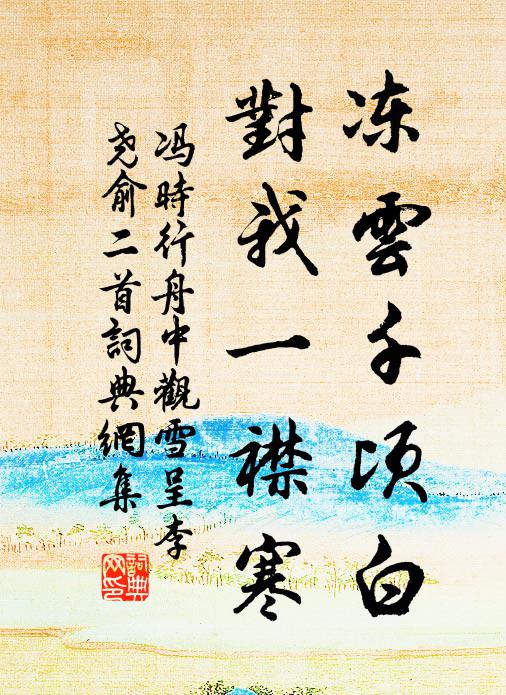 冻雲千顷白
對我一襟寒
冯時行舟中觀雪呈李
尧俞二首詞典網集
詞典
网印